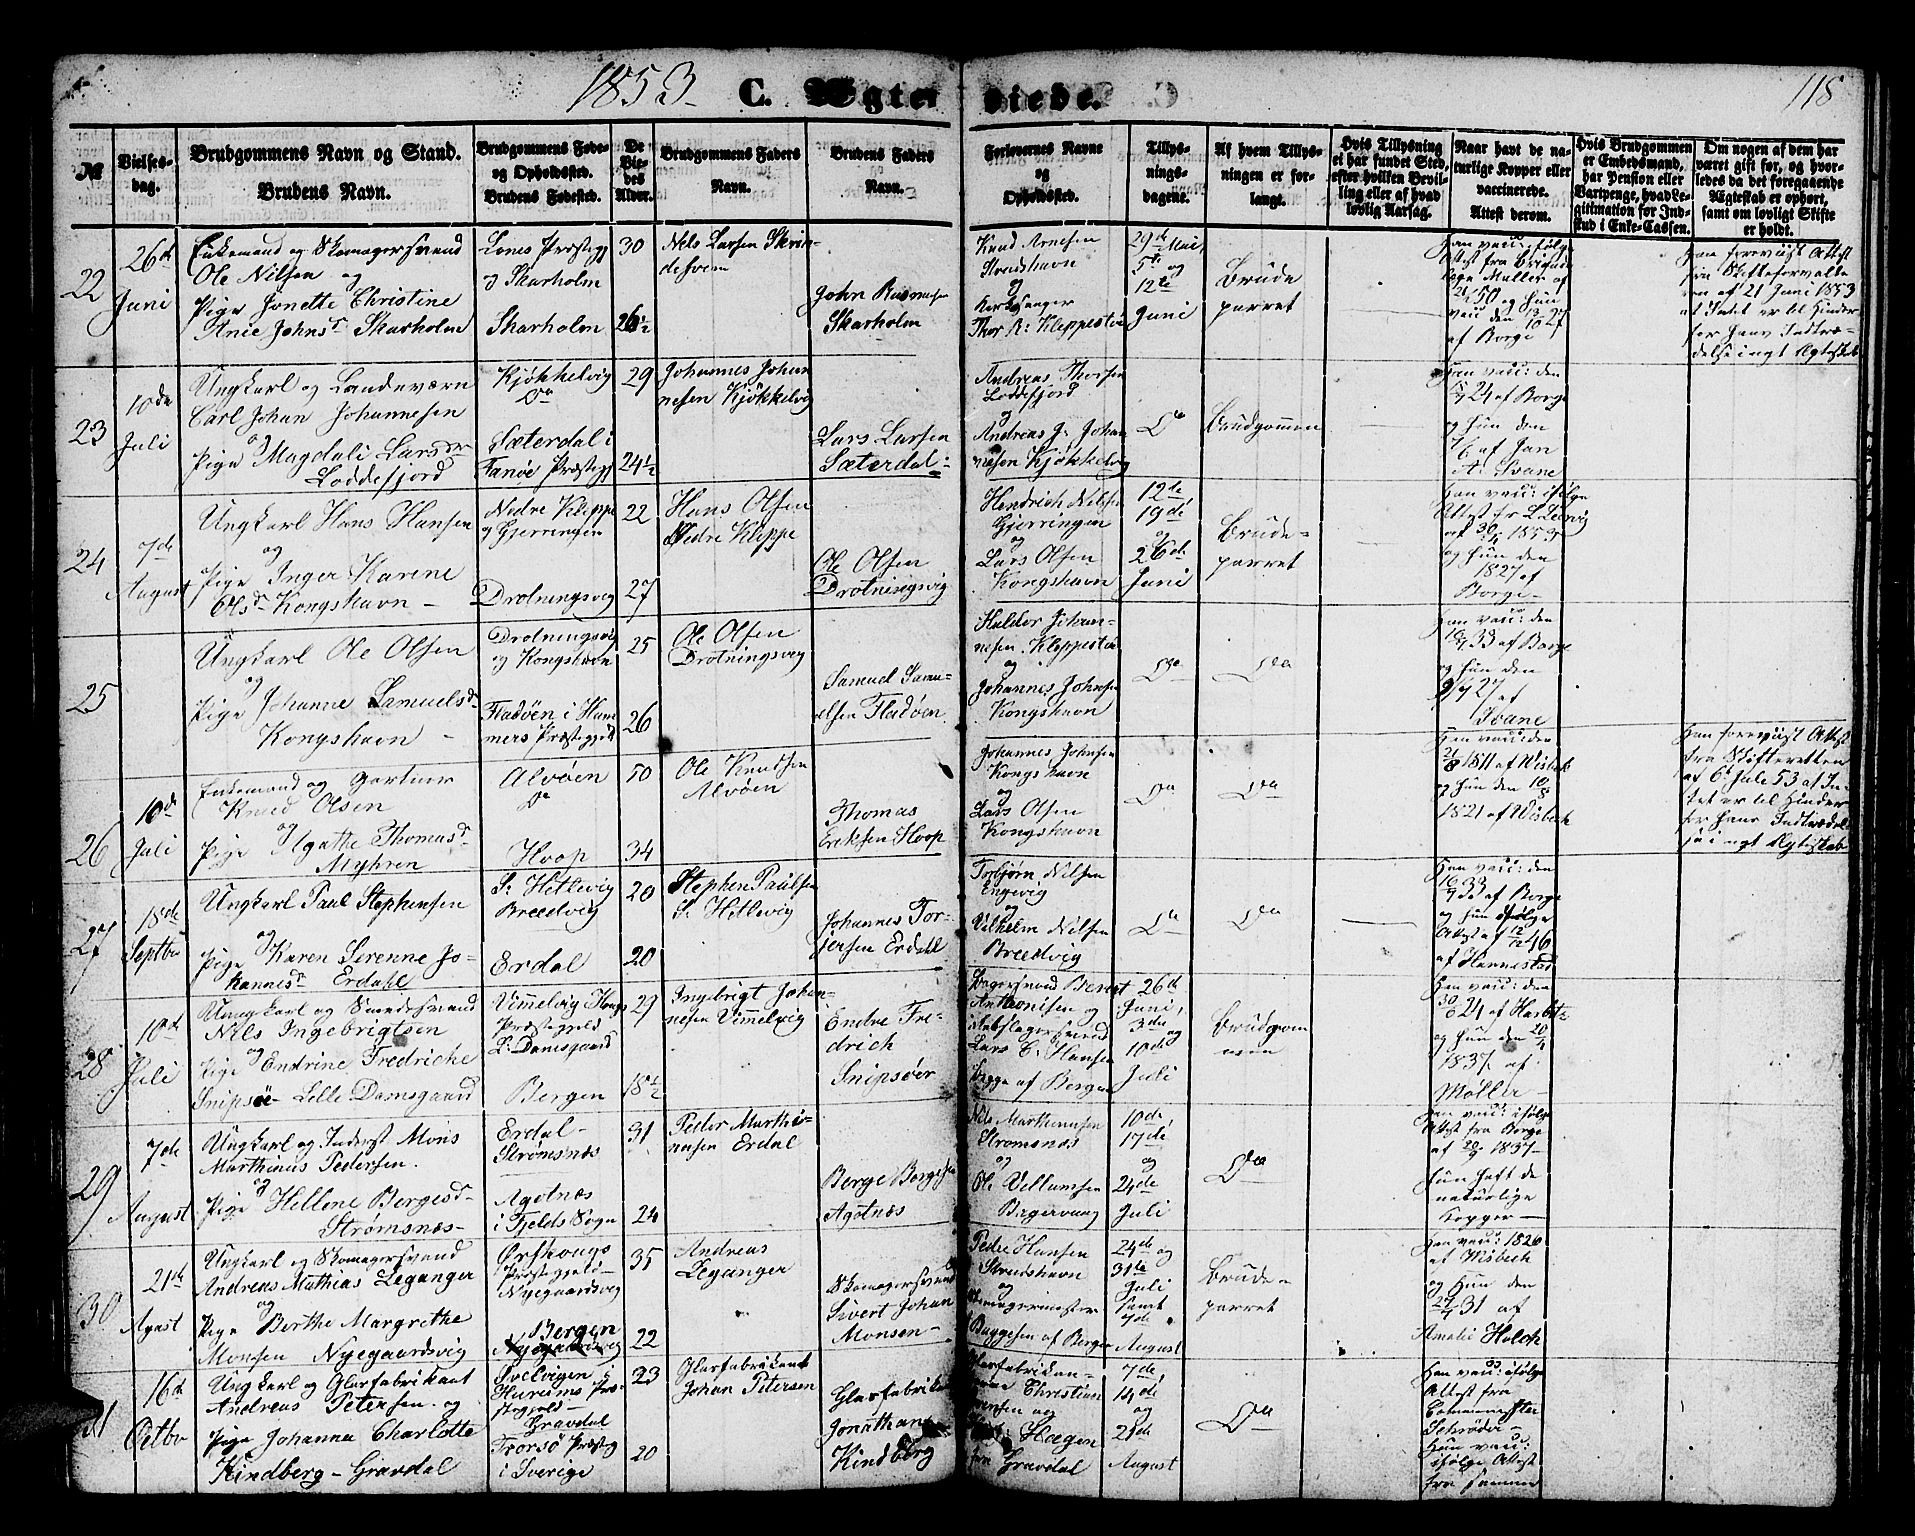 1853. C. Ægteviede. 118
№
Vielses-
dag.
Brudgommens Navn og Stand.
Brudens Navn.
Brudgommens Føde-
og Opholdssted.
Brudens Fødested.
De
Vie-
des
Alder.
Brudgommens Faders
Navn.
Brudens Faders
Navn.
Forlovernes Navne
og
Opholdssted.
Tillys-
nings-
dagene.
Af hvem Tillys-
ningen er for-
langt.
Hvis Tillysning
ei har fundet Sted,
efter hvilken Bevil-
ling eller af hvad
lovlig Aarsag.
Naar havt de na-
turlige Kopper eller
vaccinerede.
Attest derom.
Hvis Brudgommen
er Embedsmand,
har Pension eller
Vartpenge, hvad Le-
gitimation for Ind-
skud i Enke-Cassen.
Om nogen af dem har
været gift før, og hvor-
ledes da det foregaaende
Ægteskab er ophørt,
samt om lovligt Skifte
er holdt.
22
26d
Juni
Enkemand og Skomagersvend
Ole Nilsen og
Pige Jonette Christine
Anie Johnsd Skarholm
Skarholm
Skarholm
30
26½
Nils Larsen
John Rasmusen
Skarholm
Knud Arnesen
Strudshavn
og
Thor R: Kleppestø
29de Mai,
5te og
12te
Juni
Brude
parret
Han forevist Attest
fra Skifteforvalte
ren af 21 Juni 1853
at Intet er til Hinder
for hans Indtræ-
delse i nyt Ægteskab
23
10de
Juli
Ungkarl og Landeværn
Carl Johan Johannesen
og
Pige Magdali Larsdr
Loddefjord
Kjøkkelvig
Do
Sæterdal i
Fanøe Præstegj
29
24½
Johannes Johan
nesen Kjøkkelvig
Lars Larsen
Sæterdal
Andreas Thorsen
Loddefjord
og
Andreas J: Johan
nesen Kjøkkelvig
Do
Brudgommen
Han vacc: den
24 af Borge
og hun den
af Jan
A. Svane
24
7de
August
Ungkarl Hans Hansen
og
Pige Inger Karine
Olsd Kongshavn -
Nedre Kleppe
og Gjerringen
Drotningsvig
22
27
Hans Olsen
Nedre Kleppe
Ole Olsen
Drotningsvig
Hendrich Nilsen
Gjerringen
og
Lars Olsen
Kongshavn
12te,
19de
og
26de
Juni
Brude-
parret
Han vacc: ifølge
1853
og hun den
1827 af
Borge-
25
Ungkarl Ole Olsen
og
Pige Johanne Samuelsd
Kongshavn -
Drotningsvig
og Kongshavn
Fladøen i Ham
mers Præstegjeld
25
26
Ole Olsen
Drotningsvig
Samuel Samu-
elsen Fladøen
Haldor Johan-
nesen Kleppestø
og
Johannes Johnsen
Kongshavn
Do
Do
Han vacc: den
33 af Borge
og hun den
27 af
Svane
26
10d
Juli
Enkemand og Gartner
Knud Olsen
og
Pige Agathe Thomasd
Myhren
Alvøen
Do
Hoop
50
34
Ole Knudsen
Alvøen
Thomas
Eriksen Hoop
Johannes Johnsen
Kongshavn
og
Lars Olsen
Kongshavn
Do
Do
Han vacc: den
1811 af Wisbek
og hun den
1821 af Wisbech
Han forevist Attest
fra Skifteretten
af 6 Juli 53 at In-
tet er til Hinder
for hans Indtrædel
se i nyt Ægteskab
27
18de
Septbr
Ungkarl Paul Stephensen
og
Pige Karen Serenne Jo-
hannesd Erdahl
S: Hetlevig
Breedvig
Erdal
20
20
Stephen Paulsen
S: Hetlevig
Johannes Tor-
jersen Erdahl
Torbjørn Nilsen
Engevig
og
Vilhelm Nilsen
Breedvig
Do
Do
Han vacc: den
33
af Borge
og hun ifølge
Attest af
af Hannestad
28
10d
Juli
Ungkarl og Smedesvend
Nils Ingebrigtsen
og
Pige Endrine Fredriche
Snipsøe Lille Damsgaard
Vimmelvig Houg
Præstegjeld
L: Damsgaard
Bergen
29
18½
Ingebrigt Johan-
nesen Vimmelvig
Endre Fre-
drich
Snipsøer
Anthonisen og
Lars C: Hansen
begge af Bergen
26d
Juni,
3die og
10de
Juli
Brudgom
men
Han vacc: den
24 af Harbitz
og hun den
1837. af
Møller
29
7de
August
Ungkarl og Inderst Mons
Marthinus Pedersen.
og
Pige Hellene Bergesd
Strømsnæs-
Erdal-
Strømsnæs
Agotnæs
i Fjelds Sogn
31
24
Peder Marthi-
nusen Erdal
Berge Borgesen
Agotnæs
Nils Marthinusen
Stromsnæs
og
Ole Vellumsen
10de
17de
og
24de
Juli
Do
Han vacc: ifølge
Attest fra Borge
af 1837-
Hun haft de
naturlige
Kopper -
30
21de
Agust
Ungkarl og Skomagersvend
Andreas Mathias Leganger
og
Pige Berthe Margrethe
Monsen Nyegaardsvig
Ørskougs
Præstegjeld-
Nyegaardsvig
Bergen
Nyegaardsvig
35
22
Andreas
Leganger
Skomagersvend
Sivert Johan
Monsen-
Peder Hansen
Strudshavn
og
Skomagermester
Baggesen af Bergen
24de og
31te
Juli
samt
7de
August
Brude-
parret
Han vacc: 1826
af Wisbech
og hun den
31 af
Amalie Holck
31
16d
Octbr
Ungkarl og Glarfabrikant
Andreas Petersen. og
Pige Johanna Charlotte
Kindberg - Gravdal
Svelvigen i
Hurums Præ-
stegjeld-
Gravdal
Trorsø Præsteg
i Sverige
23
20
Glarfabrikant
Johan Petersen
Glarfabrik
Jonathan
Kindberg
Glarfabrikan-
terne Christian
Jensen og
Hægen
fra Gravdal
7de,
14de
og
21de
August
Do
Han vacc: ifølge
Attest fra
Schrøder
Hun vacc:
ifølge Attest
fra samme